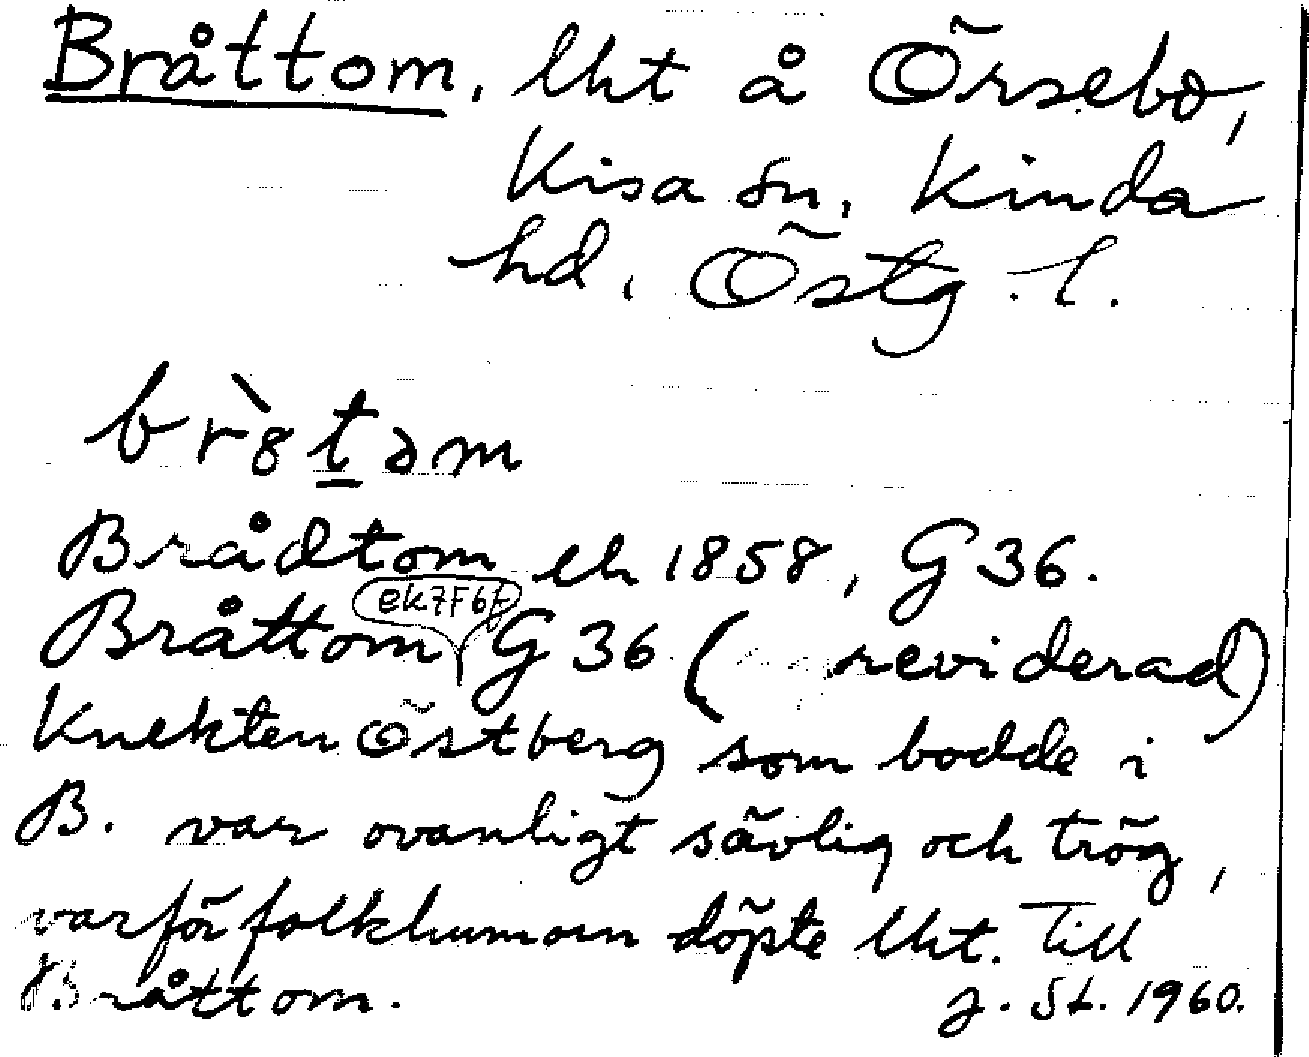 Bråttom, lht å Örsebo,
Kisa sn, Kinda
hd, Östg. l.
br̀8t̠əm
Brådtom ek 1858, G 36.
ek7F6f
Bråttom G 36 ( reviderad)
Knekten Östberg som bodde i
B. var ovanligt sävlig och trög,
varför folkhumorn döpte lht. till
Bråttom.
J. St. 1960.